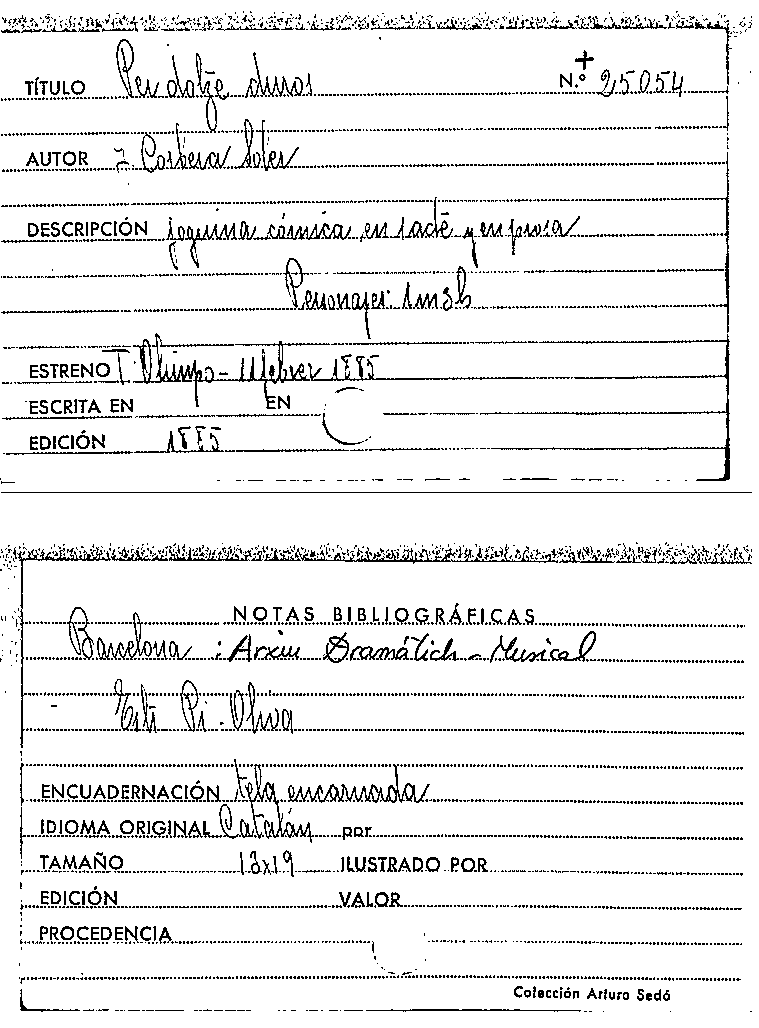 TÍTULO Per dotze duros N.º + 25054
AUTOR J. Corbera Soler
DESCRIPCIÓN joguina cómica en 1 acte y en prosa
Personajes: 1m3h
ESTRENO T. Olimpo - febrer 1885
ESCRITA EN EN
EDICIÓN 1885
NOTAS BIBLIOGRÁFICAS
Barcelona : Arxiu Dramátich - Musical
Pi. Oliva
ENCUADERNACIÓN tela encarnada
IDIOMA ORIGINAL Catalán por
TAMAÑO 13x19 ILUSTRADO POR
EDICIÓN VALOR
PROCEDENCIA
Colección Arturo Sedó